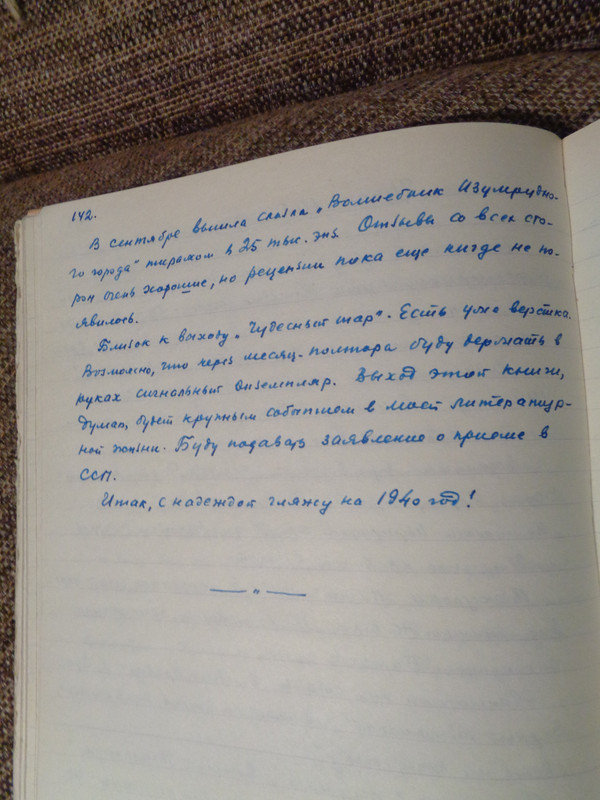 142.
В сентябре вышла сказка „Волшебник Изумрудно-
го города" тиражом в 25 тыс. экз. Отзывы со всех сто-
рон очень хорошие, но рецензии пока еще нигде не по-
явилось.
Близок к выходу „Чудесный шар". Есть уже верстка.
Возможно, что через месяц-полтора буду держать в
руках сигнальный экземпляр. Выход этой книги,
думаю, будет крупным событием в моей литератур-
ной жизни. Буду подавать заявление о приеме в
ССП.
Итак, с надеждой гляжу на 1940 год!
— " —